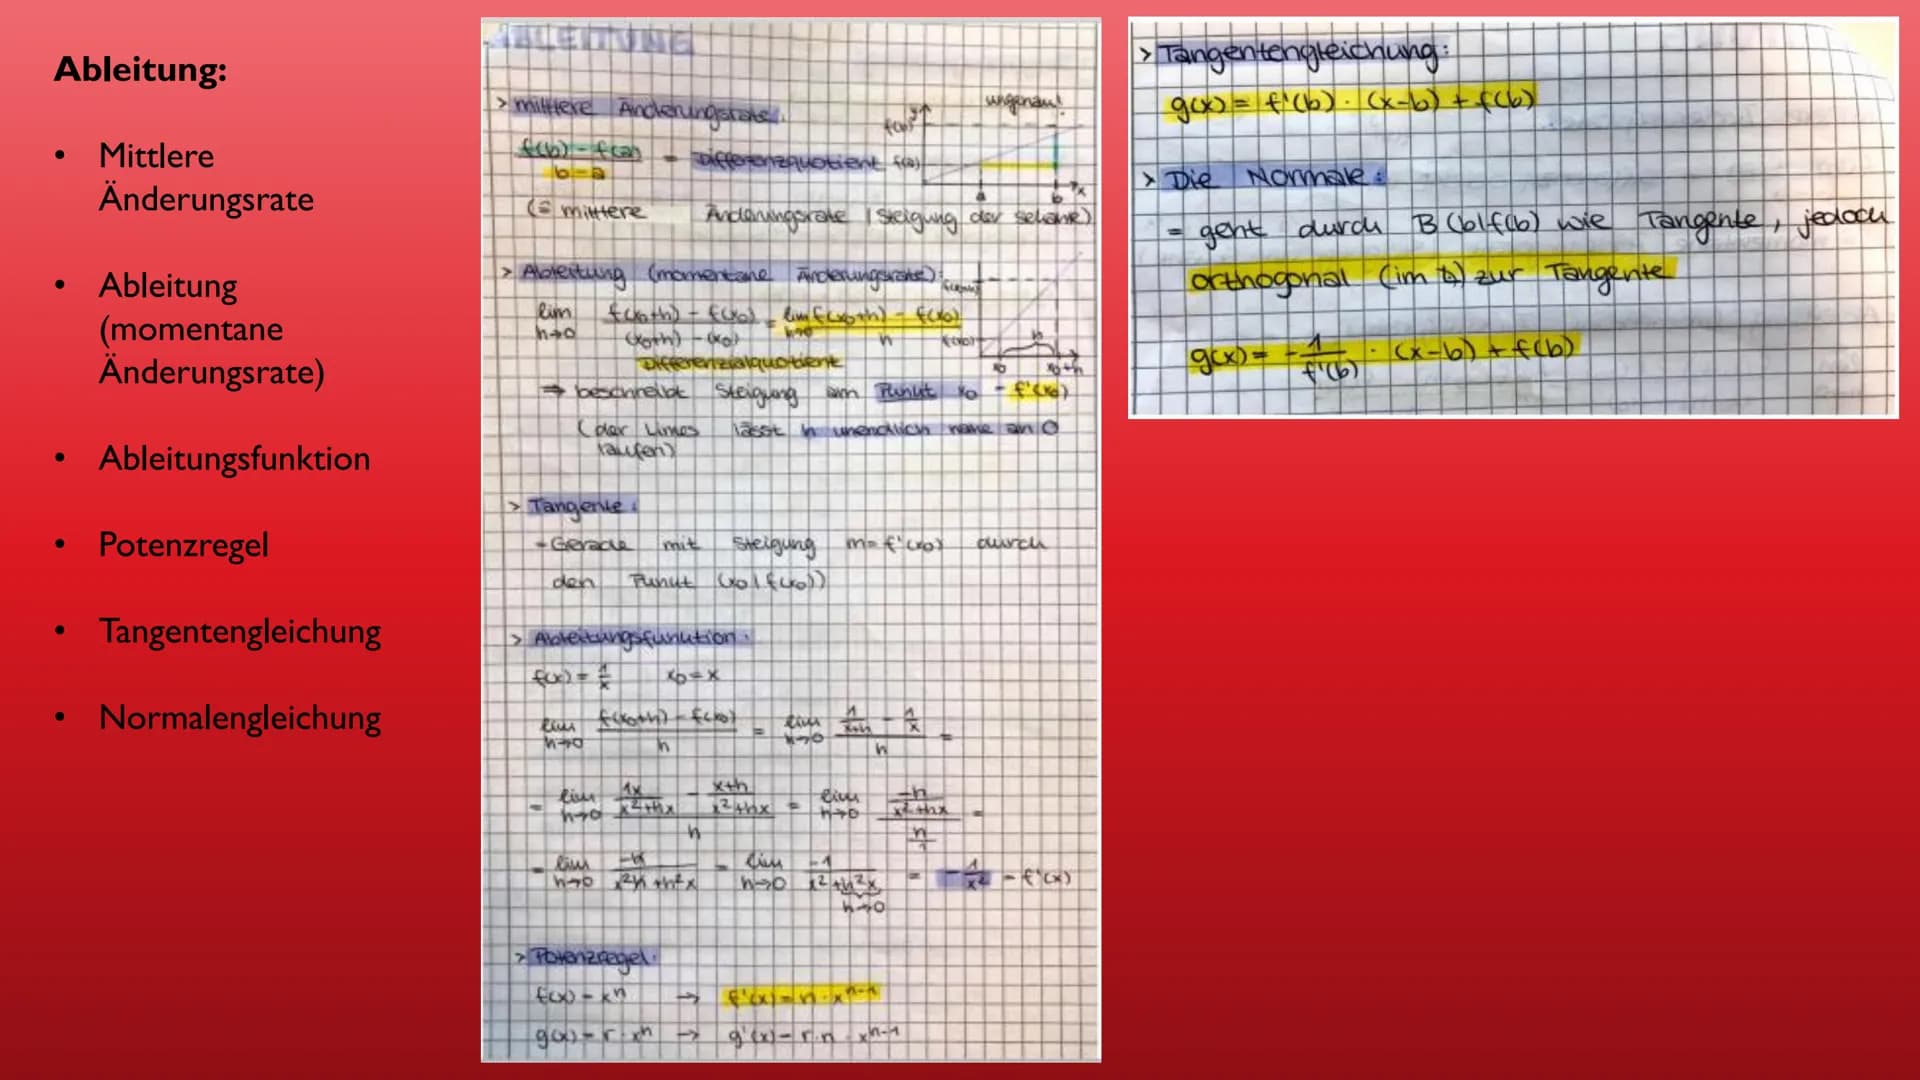 Ableitung:
• Mittlere
Änderungsrate
• Ableitung
(momentane
Änderungsrate)
• Ableitungsfunktion
• Potenzregel
• Tangentengleichung
• Normalengleichung
ABLEITUNG
> mittlere Änderungsrate:
ungenau!
f(b) y
f(b)-f(a) / b-a = Differenzquotient f(a)
a b x
(= mittere Änderungsrate / Steigung der Sekante)
> Ableitung (momentane Änderungsrate):
lim h→0 f(x0+h) - f(x0) / (x0+h) - (x0) = lim h→0 f(x0+h) - f(x0) / h
f(x0)
h
x0 x0+h
Differenzialquotient
⇒ beschreibt Steigung am Punkt x0 = f'(x0)
(der Limes lässt h unendlich nahe an 0
laufen)
> Tangente:
- Gerade mit Steigung m=f'(x0) durch
den Punkt (x0|f(x0))
> Ableitungsfunktion:
f(x) = 1/x x0=x
lim h→0 f(x0+h) - f(x0) / h = lim h→0 (1/x+h - 1/x) / h =
= lim h→0 (1x/x²+hx - x+h/x²+hx) / h = lim h→0 (-h/x²+hx) / (h/1) =
= lim h→0 -h / x²h+h²x = lim h→0 -1 / x²+h²x = -1/x² = f'(x)
h→0
> Potenzregel:
f(x) = xⁿ → f'(x) = n·xⁿ⁻¹
g(x) = r·xⁿ → g'(x) = r·n·xⁿ⁻¹
> Tangentengleichung:
g(x) = f'(b) · (x-b) + f(b)
> Die Normale:
= geht durch B (b|f(b) wie Tangente, jedoch
orthogonal (im ⦜) zur Tangente
g(x) = - 1/f'(b) · (x-b) + f(b)